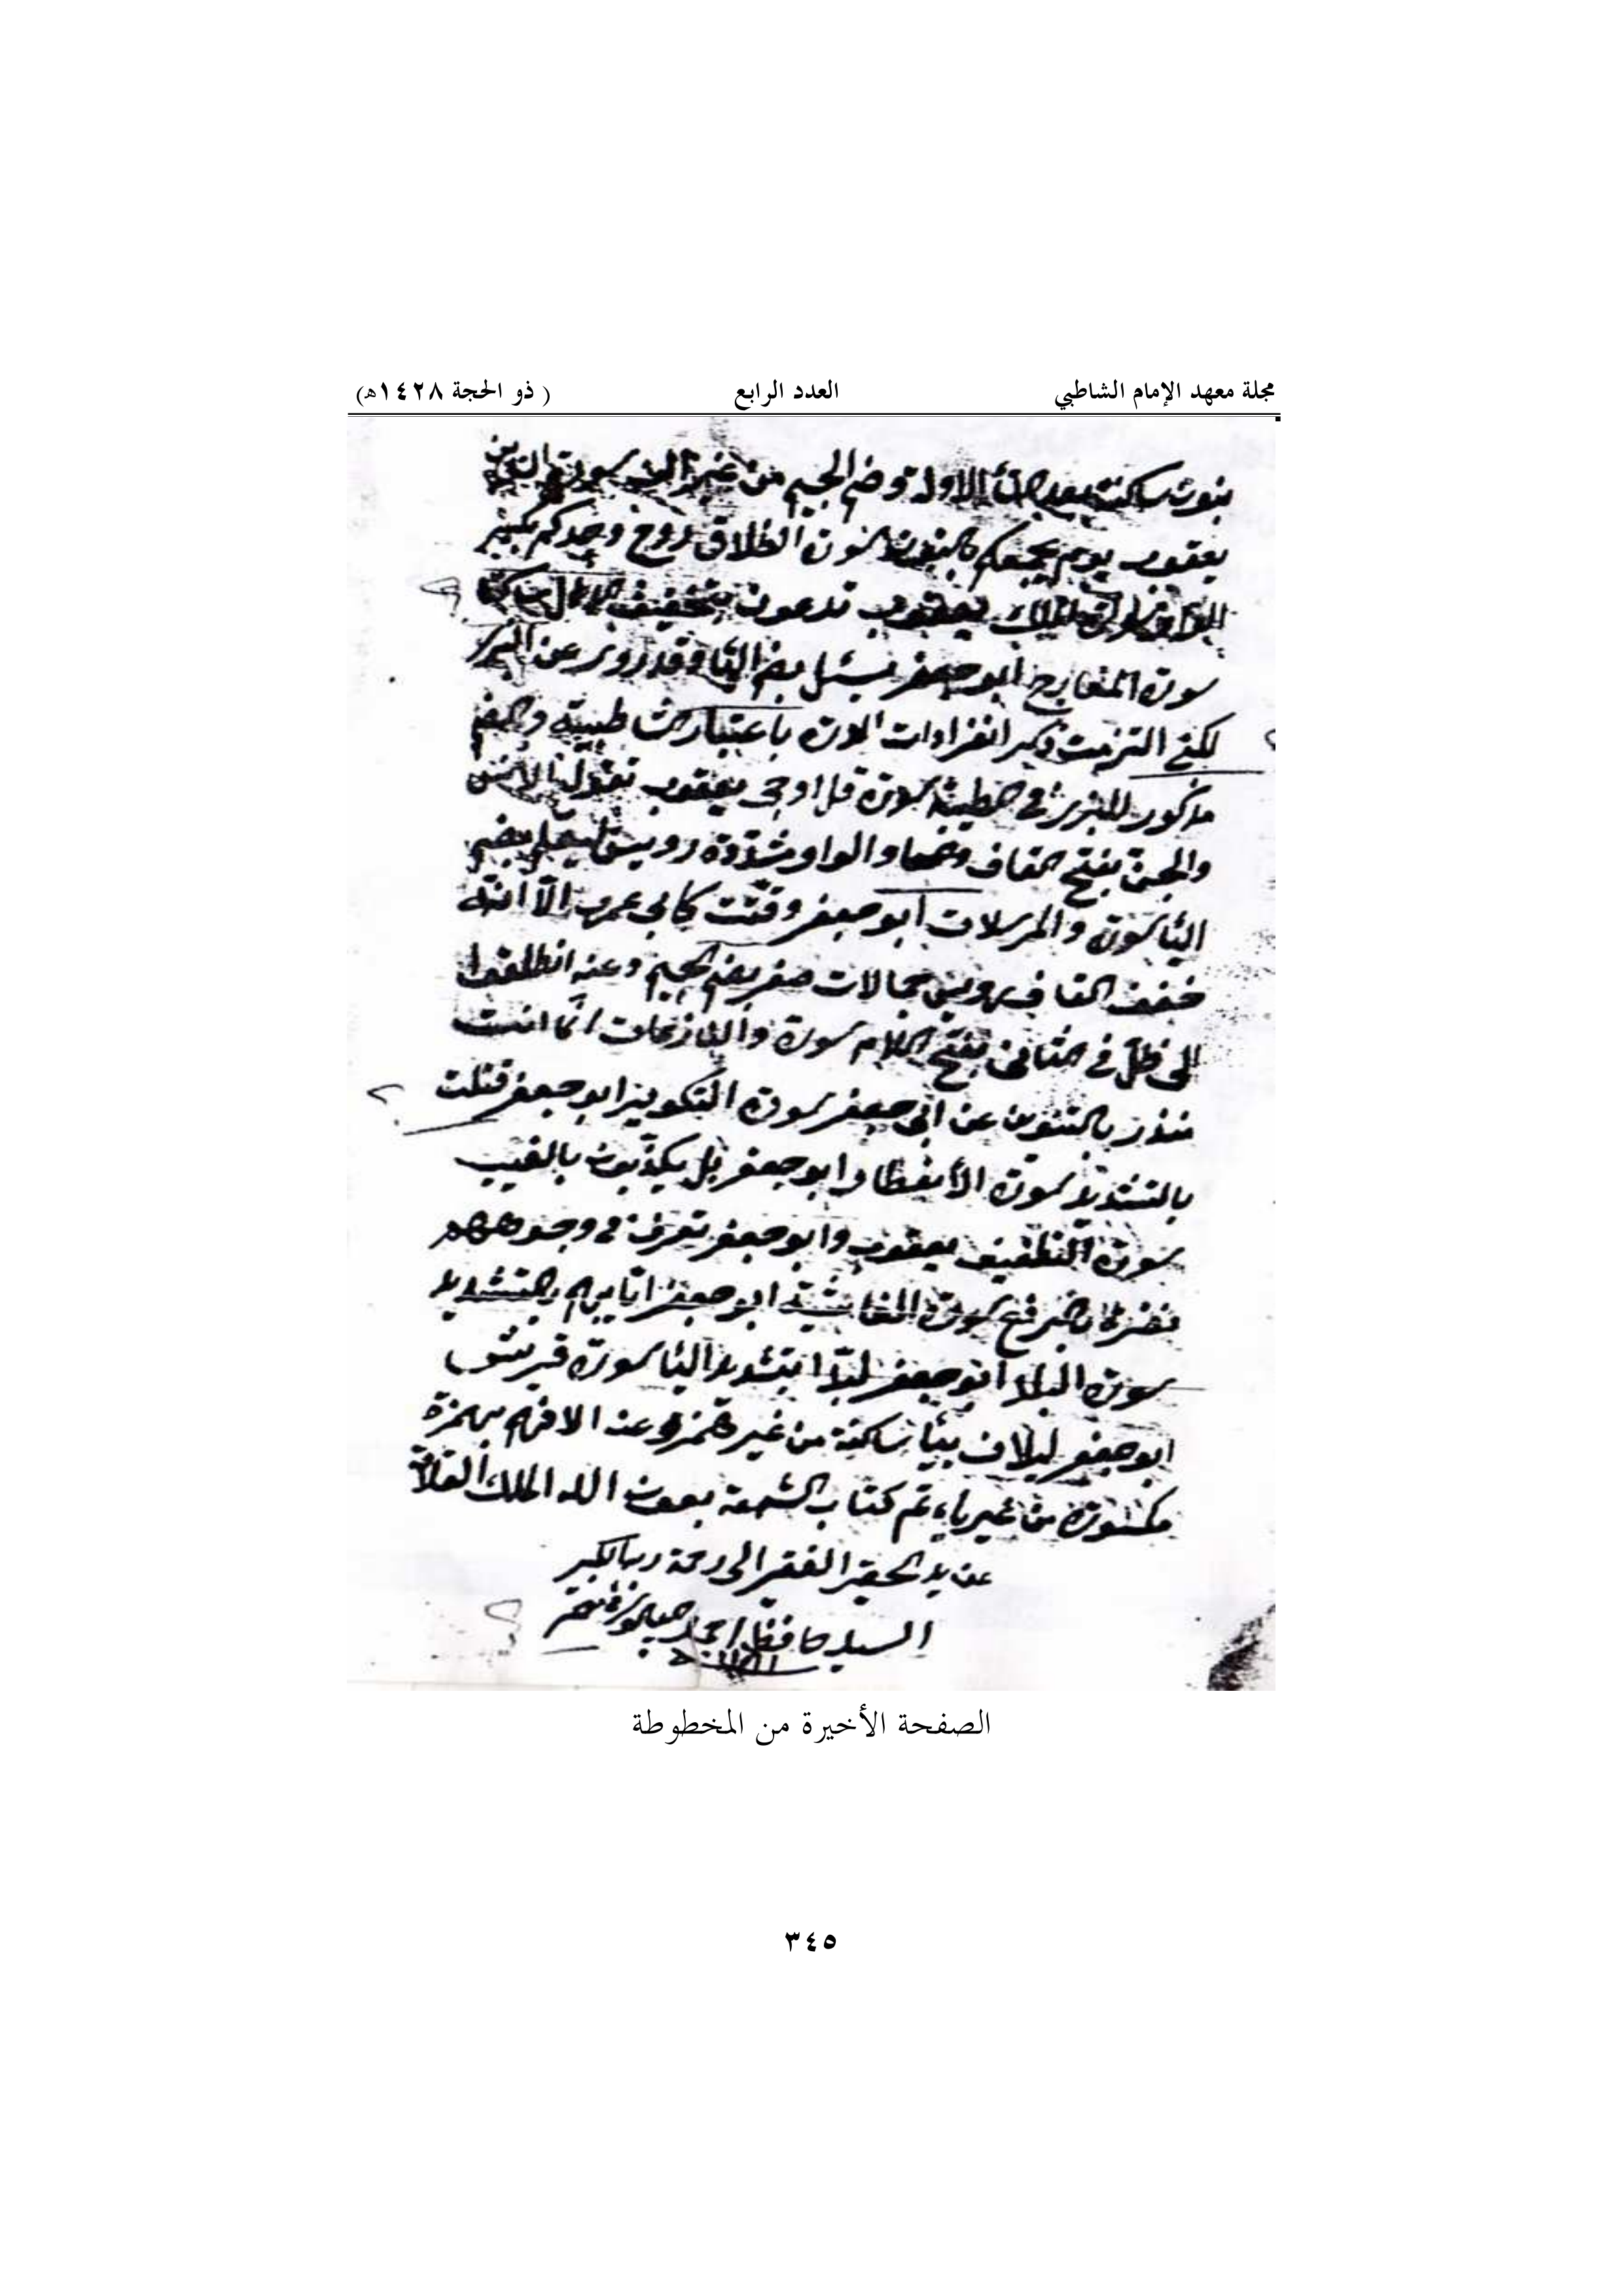 مجلة معهد الإمام الشاطبي العدد الرابع ( ذو الحجة ١٤٢٨هـ)
بنون ساكنة بعد الأولى وضم الجيم من غير الف سورة
يعقوب يوم يجمعكم بالنون سورة الطلاق روح وجدكم بكسر
الواو يعقوب تدعون بتخفيف
سورة المعارج ابو جعفر يسئل بضم اليا وقد روي عن البز
لكني التزمت ذكر انفرادات باعتبار الشاطبية والضم
مذكور للبزي في سورة قل اوحي يعقوب تقول الانس
والجن بفتح القاف وفتحها والواو مشددة رويس ليعلم بضم
اليا سورة والمرسلات ابو جعفر وقتت كابي عمرو الا انه
خفف القاف رويس جمالات صفر بضم الجيم وعنه انطلقوا
الى ظل في الثاني بفتح اللام سورة والنازعات انما انت
منذر بالتنوين عن ابي جعفر سورة التكوير ابو جعفر قتلت
بالتشديد سورة الأنفطار ابو جعفر بل يكذبون بالغيب
سورة التطفيف يعقوب وابو جعفر تعرف في وجوههم
نضرة سورة الغاشية ابو جعفر ايابهم بالتشديد
سورة البلد ابو جعفر لبدا بتشديد البا سورة قريش
ابو جعفر ليلاف بيا ساكنة من غير همز وعنه الافهم بهمزة
مكسورة من غير ياء تم كتاب الشمعة بعون الله الملك
عن يد الحقير الفقير الى رحمة ربه
السيد حافظ احمد
الصفحة الأخيرة من المخطوطة
٣٤٥